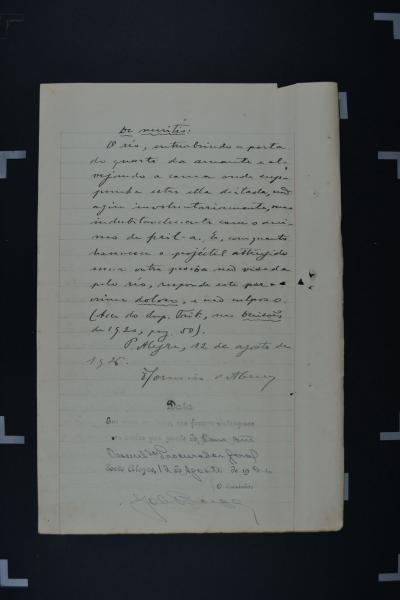 De meritis:
O réo, entreabrindo a porta
do quarto da amante e al-
vejando a cama onde sup-
punha estar ella deitada, não
agiu involuntariamente, mas
indubitavelmente com o ani-
mo de feril-a. E, comquanto
houvesse o projéctil attingido
outra pessôa não visada
pelo réo, responde este por
crime doloso, e não culposo.
(Acc. do Sup. Trib., nas Decisões
de 1920, pag. 50).
P. Alegre, 12 de agosto de
1926.
d'Abreu
Data
foram entregues
autos por parte do Exmo. Snr.
Procurador Geral
Porto Alegre, 12 de Agosto de 1926
O